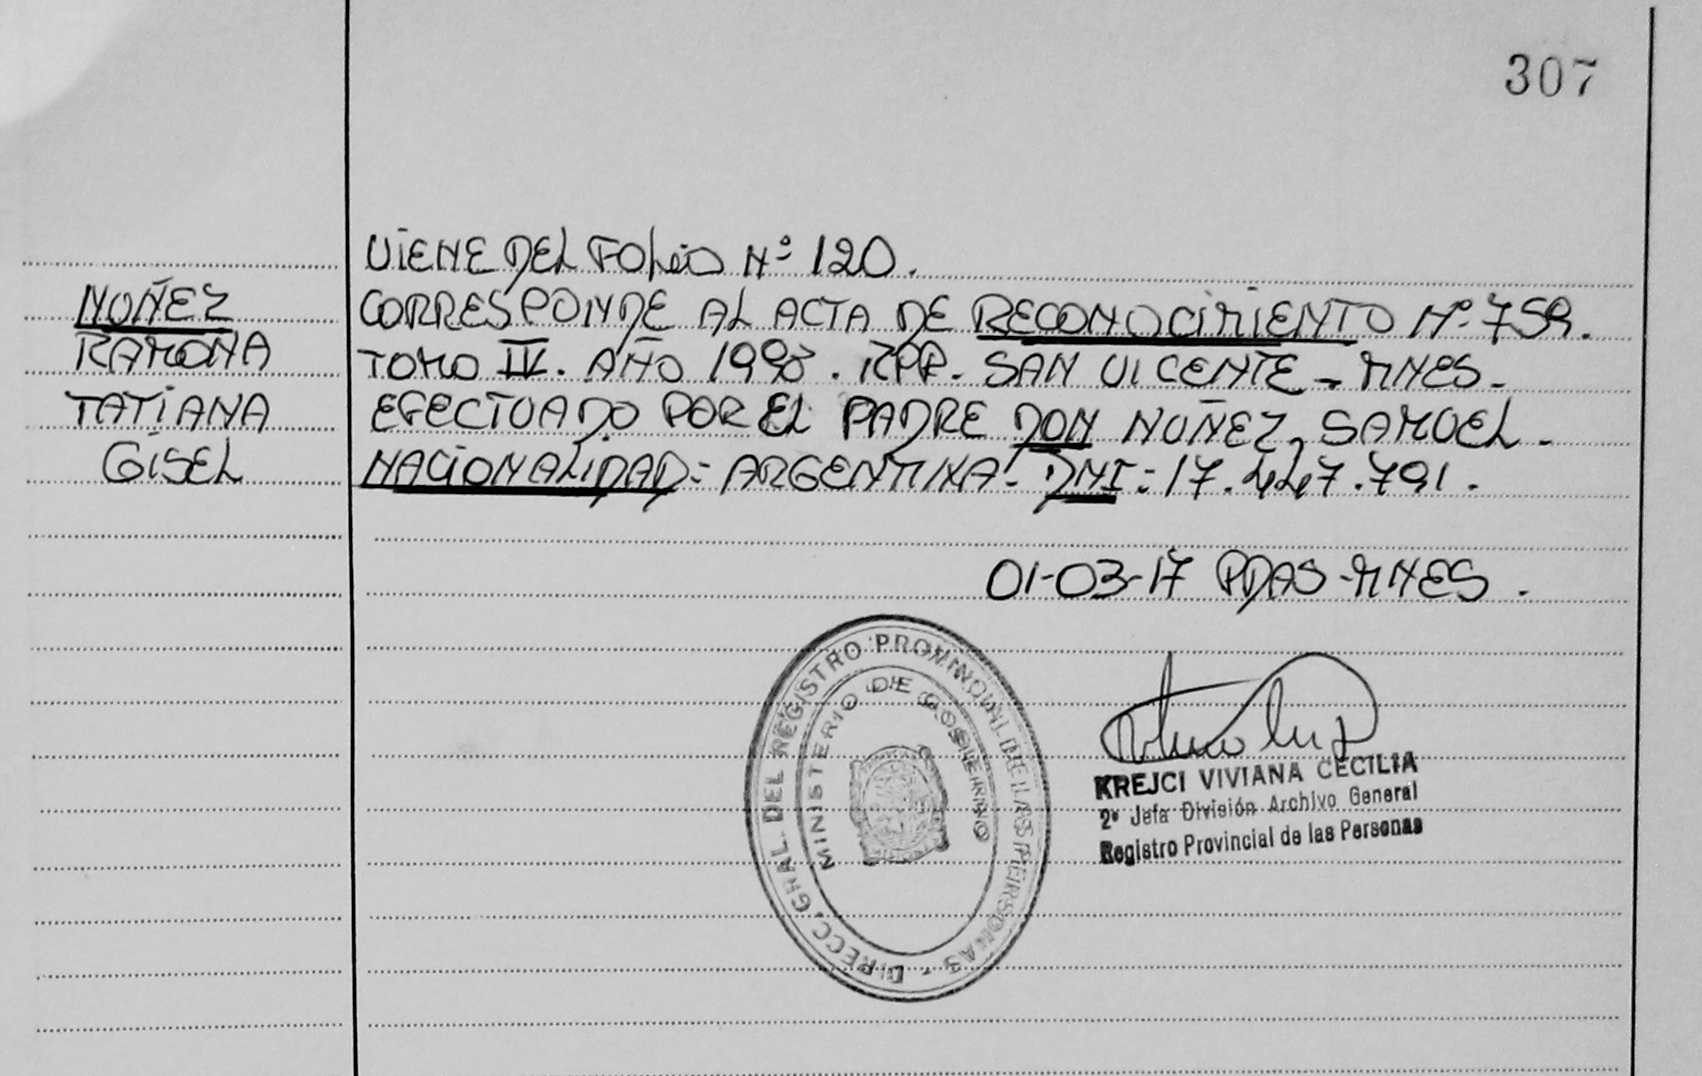 307
VIENE DEL FOLIO Nº 120.
NUÑEZ
CORRESPONDE AL ACTA DE RECONOCIMIENTO Nº 759.
RAMONA
TOMO IV. AÑO 1998. RPP. SAN VICENTE - MNES-
TATIANA
EFECTUADO POR EL PADRE DON NUÑEZ, SAMUEL-
GISEL
NACIONALIDAD: ARGENTINA- DNI: 17.227.791.
01-03-17 PDAS-MNES.
DIRECC. GRAL. DEL REGISTRO PROVINCIAL DE LAS PERSONAS -
MINISTERIO DE GOBIERNO
KREJCI VIVIANA CECILIA
2º Jefa División Archivo General
Registro Provincial de las Personas